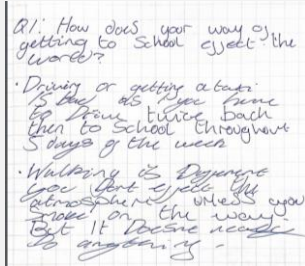 Q1: How does your way of
getting to School effect the
world?
• Driving or getting a taxi
is bad as you have
to Drive twice back
then to School throughout
5 days of the week
• Walking is Different
you dont effect the
atmosphere unless you
smoke on the way
But It Doesnt really
do anything.